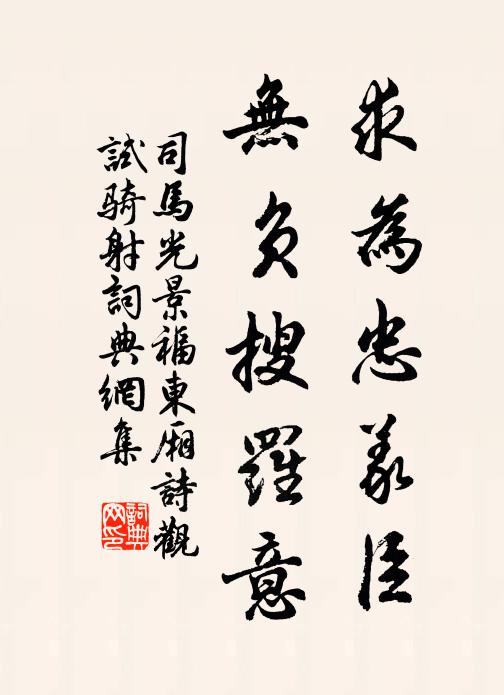 求為忠義臣
無負搜羅意
司馬光景福東廂詩觀
試騎射詞典網集
詞典
网印